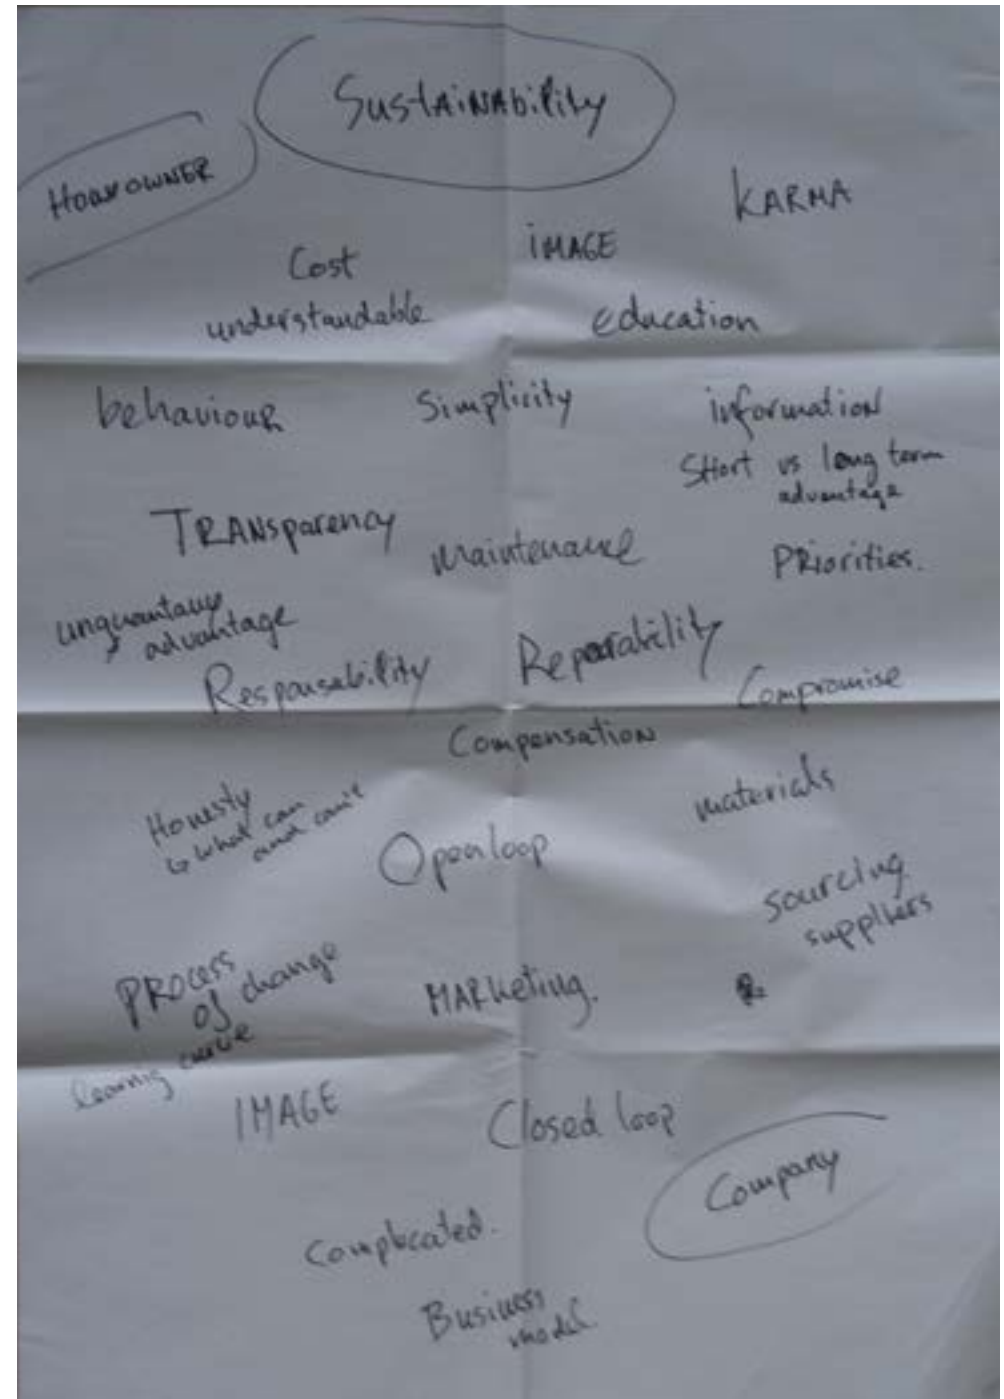 Sustainability
HOMEOWNER
KARMA
iMAGE
Cost
understandable
education
behaviour
Simplicity
information
SHort vs long term
advantage
TRANsparency
maintenance
PRiorities.
advantage
Reparability
Responsability
Compromise
Compensation
materials
Honesty
↳ what can
and can't
Open loop
sourcing
suppliers
PROCESS
of change
learnig curve
MARketing.
IMAGE
Closed loop
Company
Complicated.
Business
model.